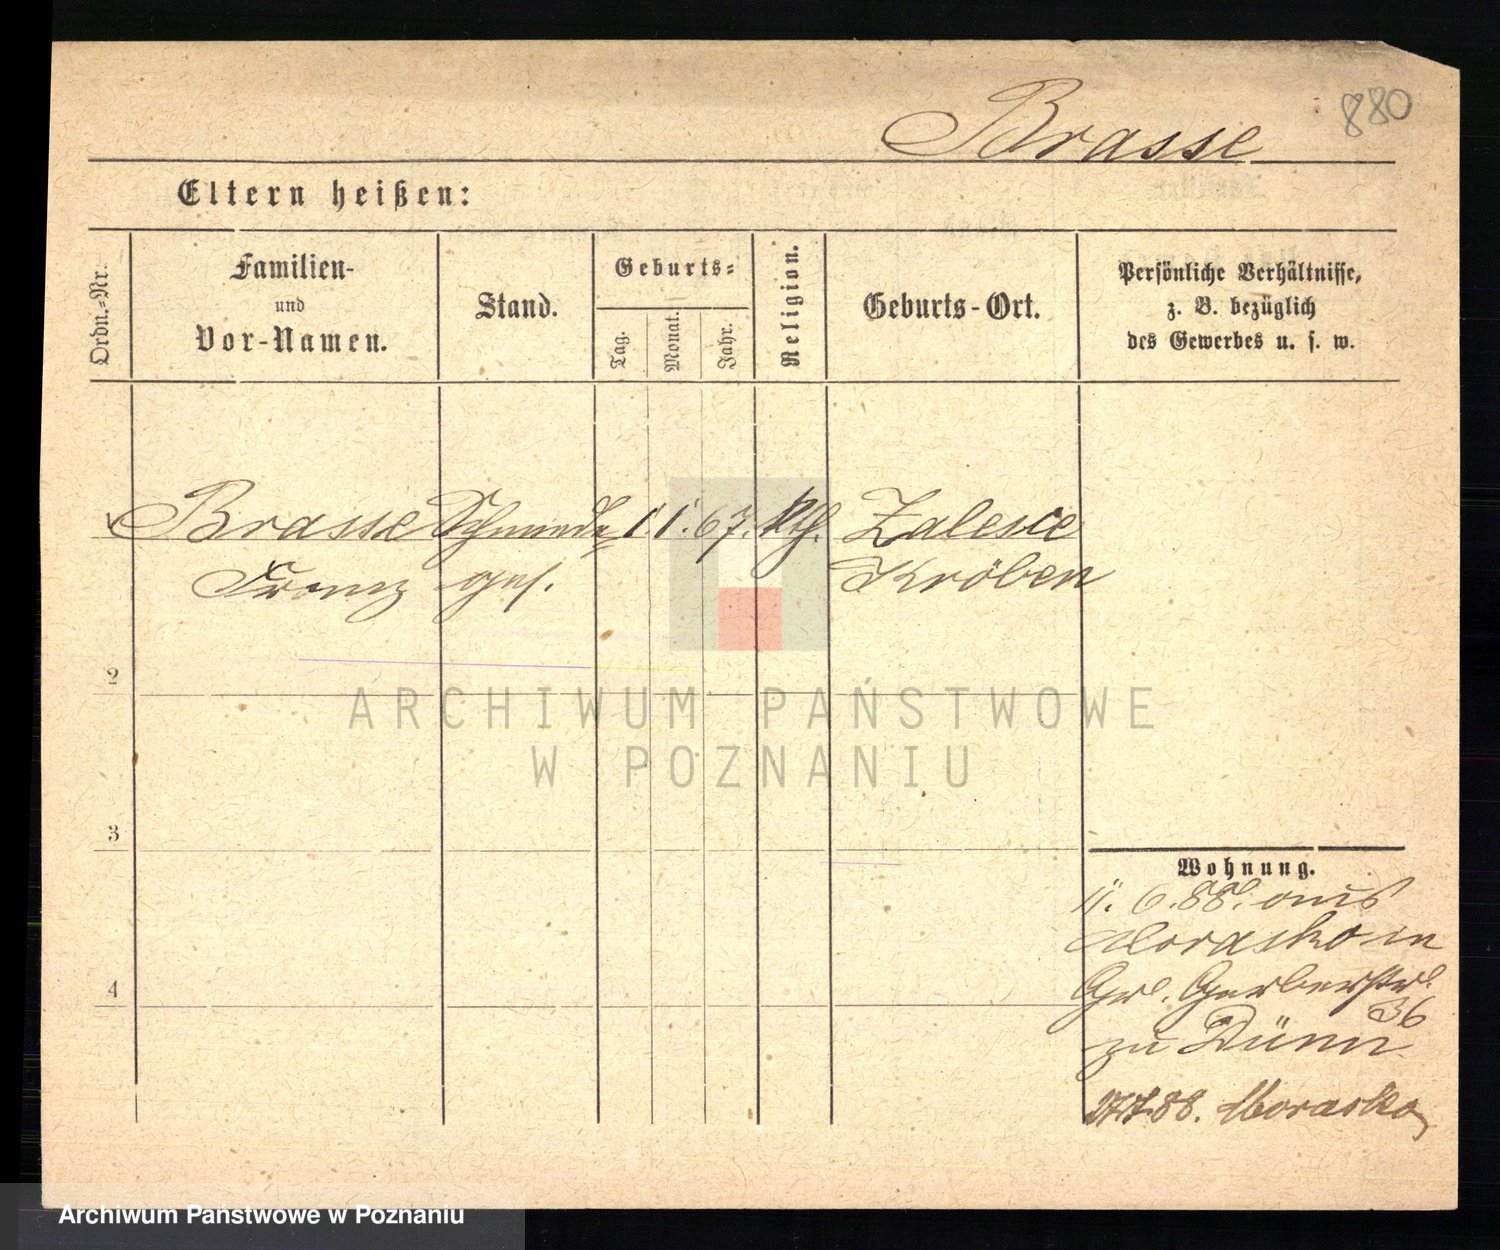 880
Brasse
Eltern heißen:
Ordn.-Nr.
Familien-
und
Vor-Namen.
Stand.
Geburts-
Tag.
Monat.
Jahr.
Religion.
Geburts-Ort.
Persönliche Verhältnisse,
z. B. bezüglich
des Gewerbes u. s. w.
Brasse Schmiede 1. 1. 67. kth. Zalesie
Franz ges. Kröben
2
3
4
ARCHIWUM PAŃSTWOWE
W POZNANIU
Wohnung.
11. 6. 88. aus
Morasko in
Gr. Gerberstr.
36
zu Dümn
27.7.88. Morasko
Archiwum Państwowe w Poznaniu